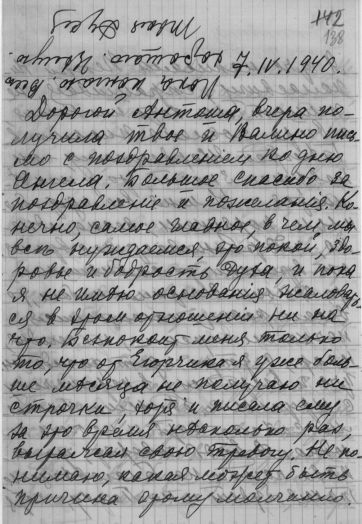 142
138
7.IV.1940.
Дорогой Антоша, вчера по-
лучила твое и Валино пись-
мо с поздравлением ко дню
Ангела. Большое спасибо за
поздравление и пожелания. Ко-
нечно, самое главное, в чем мы
все нуждаемся, это покой, здо-
ровье и бодрость духа, и пока
я не имею основания жаловать-
ся в этом отношении ни на
что. Беспокоит меня только
то, что от Егорчика я уже боль-
ше месяца не получаю ни
строчки, хотя и писала ему
за это время несколько раз,
выражая свою тревогу. Не по-
нимаю, какая может быть
причина этому молчанию.